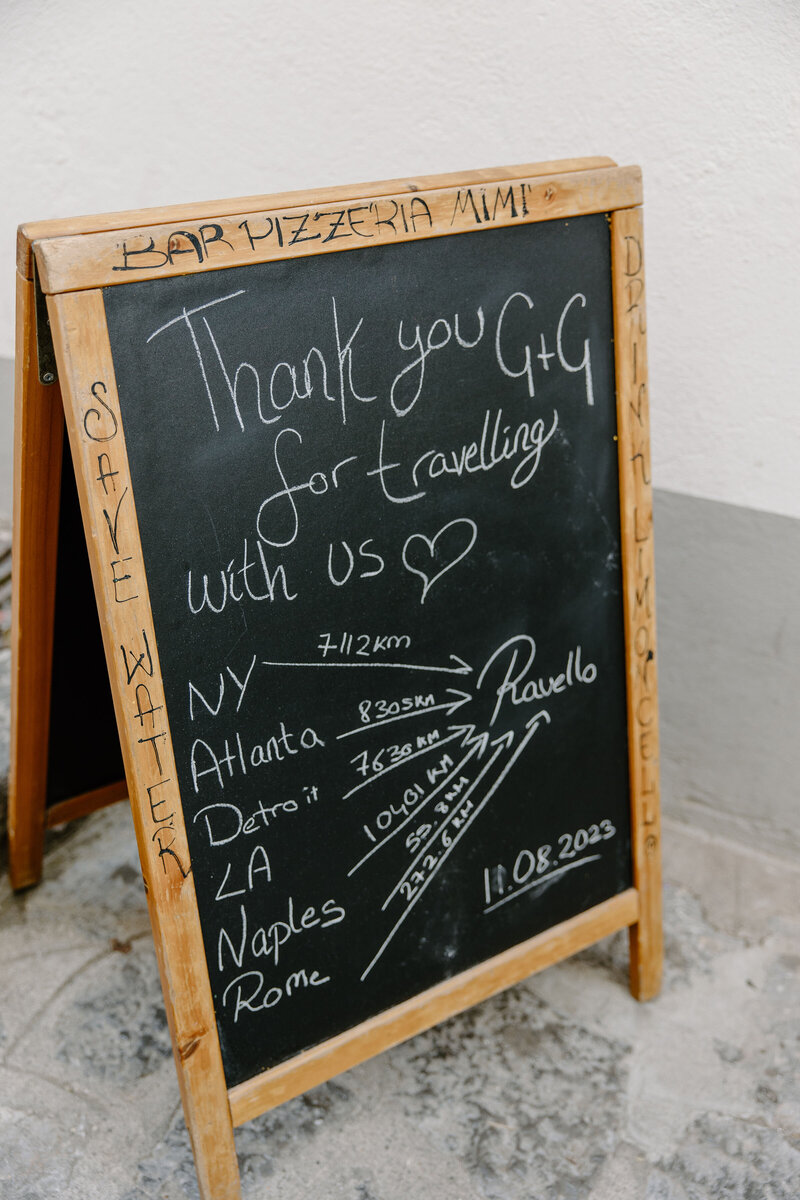 BAR PIZZERIA MIMI'
SAVE WATER
DRINK LIMONCELLO
Thank you G+G
for travelling
with us
NY 7112KM Ravello
Atlanta 8305KM
Detroit 7630KM
LA 10401 KM
Naples 55.8KM
Rome 272.6KM
11.08.2023